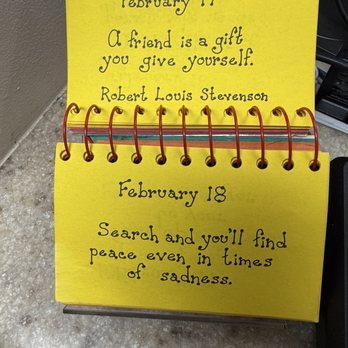 February 17
A friend is a gift
you give yourself.
Robert Louis Stevenson
February 18
Search and you'll find
peace even in times
of sadness.